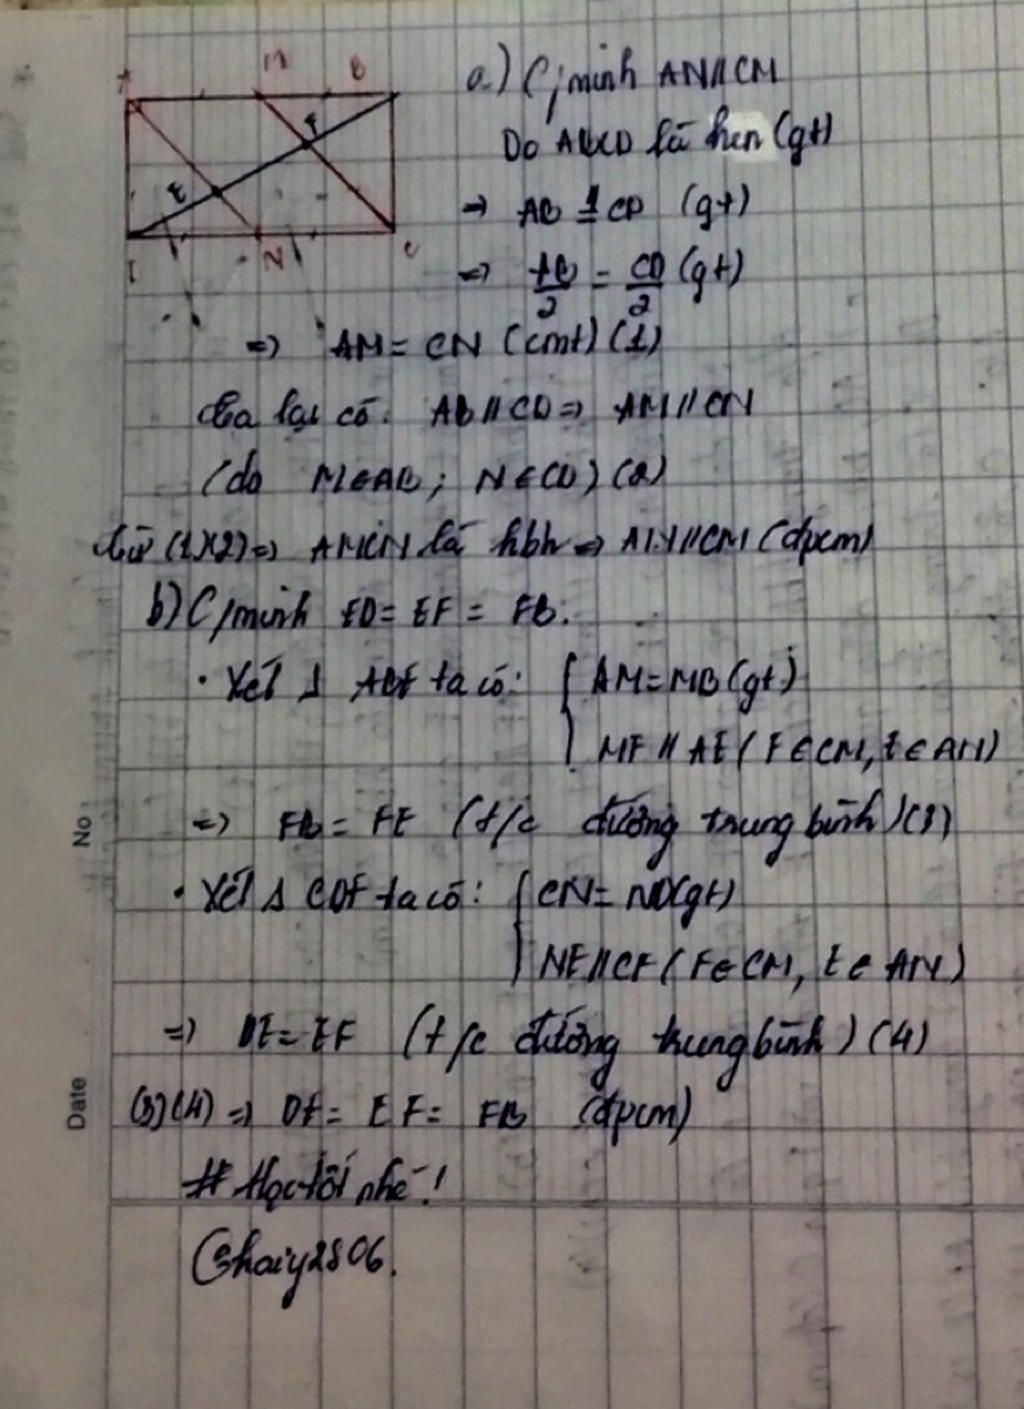 A M B
F
E
N C
a.) C/minh AN//CM
Do ABCD là hcn (gt)
=> AB = CD (gt)
=> AB/2 = CD/2 (gt)
=> AM = CN (cmt) (1)
Ta lại có: AB//CD => AM//CN
(do M∈AB; N∈CD) (2)
Từ (1)(2) => AMCN là hbh => AN//CM (đpcm)
b) C/minh ED = EF = FB.
• Xét Δ ABE ta có: { AM=MB (gt)
MF // AE ( F∈CM, E∈AN)
=> FB = FE (t/c đường trung bình) (3)
• Xét Δ CDF ta có: { CN = ND (gt)
NE//CF ( F∈CM, E∈AN)
=> DE = EF (t/c đường trung bình) (4)
(3)(4) => DE = EF = FB (đpcm)
# Học tốt nhé!
No
Date